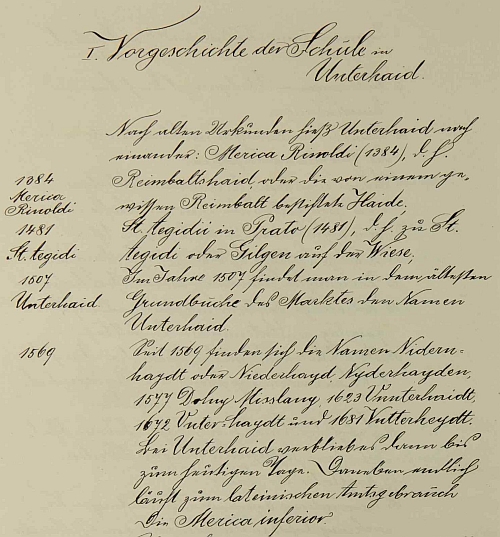 I. Vorgeschichte der Schule in
Unterhaid.
Nach alten Urkunden hieß Unterhaid nach
einander: Merica Rinoldi (1384), d. h.
1384
Reimbaltshaid, oder die von einem ge-
Merica
Rinoldi
wissen Reimbalt bestiftete Haide.
1481
St. Aegidii in Prato (1481), d. h. zu St.
St. Aegidi
Aegidi oder Gilgen auf der Wiese.
1507
Im Jahre 1507 findet man in dem ältesten
Unterhaid
Grundbuche des Marktes den Namen
Unterhaid.
1569
Seit 1569 finden sich die Namen Nidern-
haydt oder Niederhayd, Nyderhayden,
1577 Dolny Misslany, 1623 Vnnterhaidt,
1672 Vnter-haydt und 1681 Vntterheydt.
Bei Unterhaid verblieb es dann bis
zum heutigen Tage. Daneben endlich
läuft zum lateinischen Amtsgebrauch
Die Merica inferior.